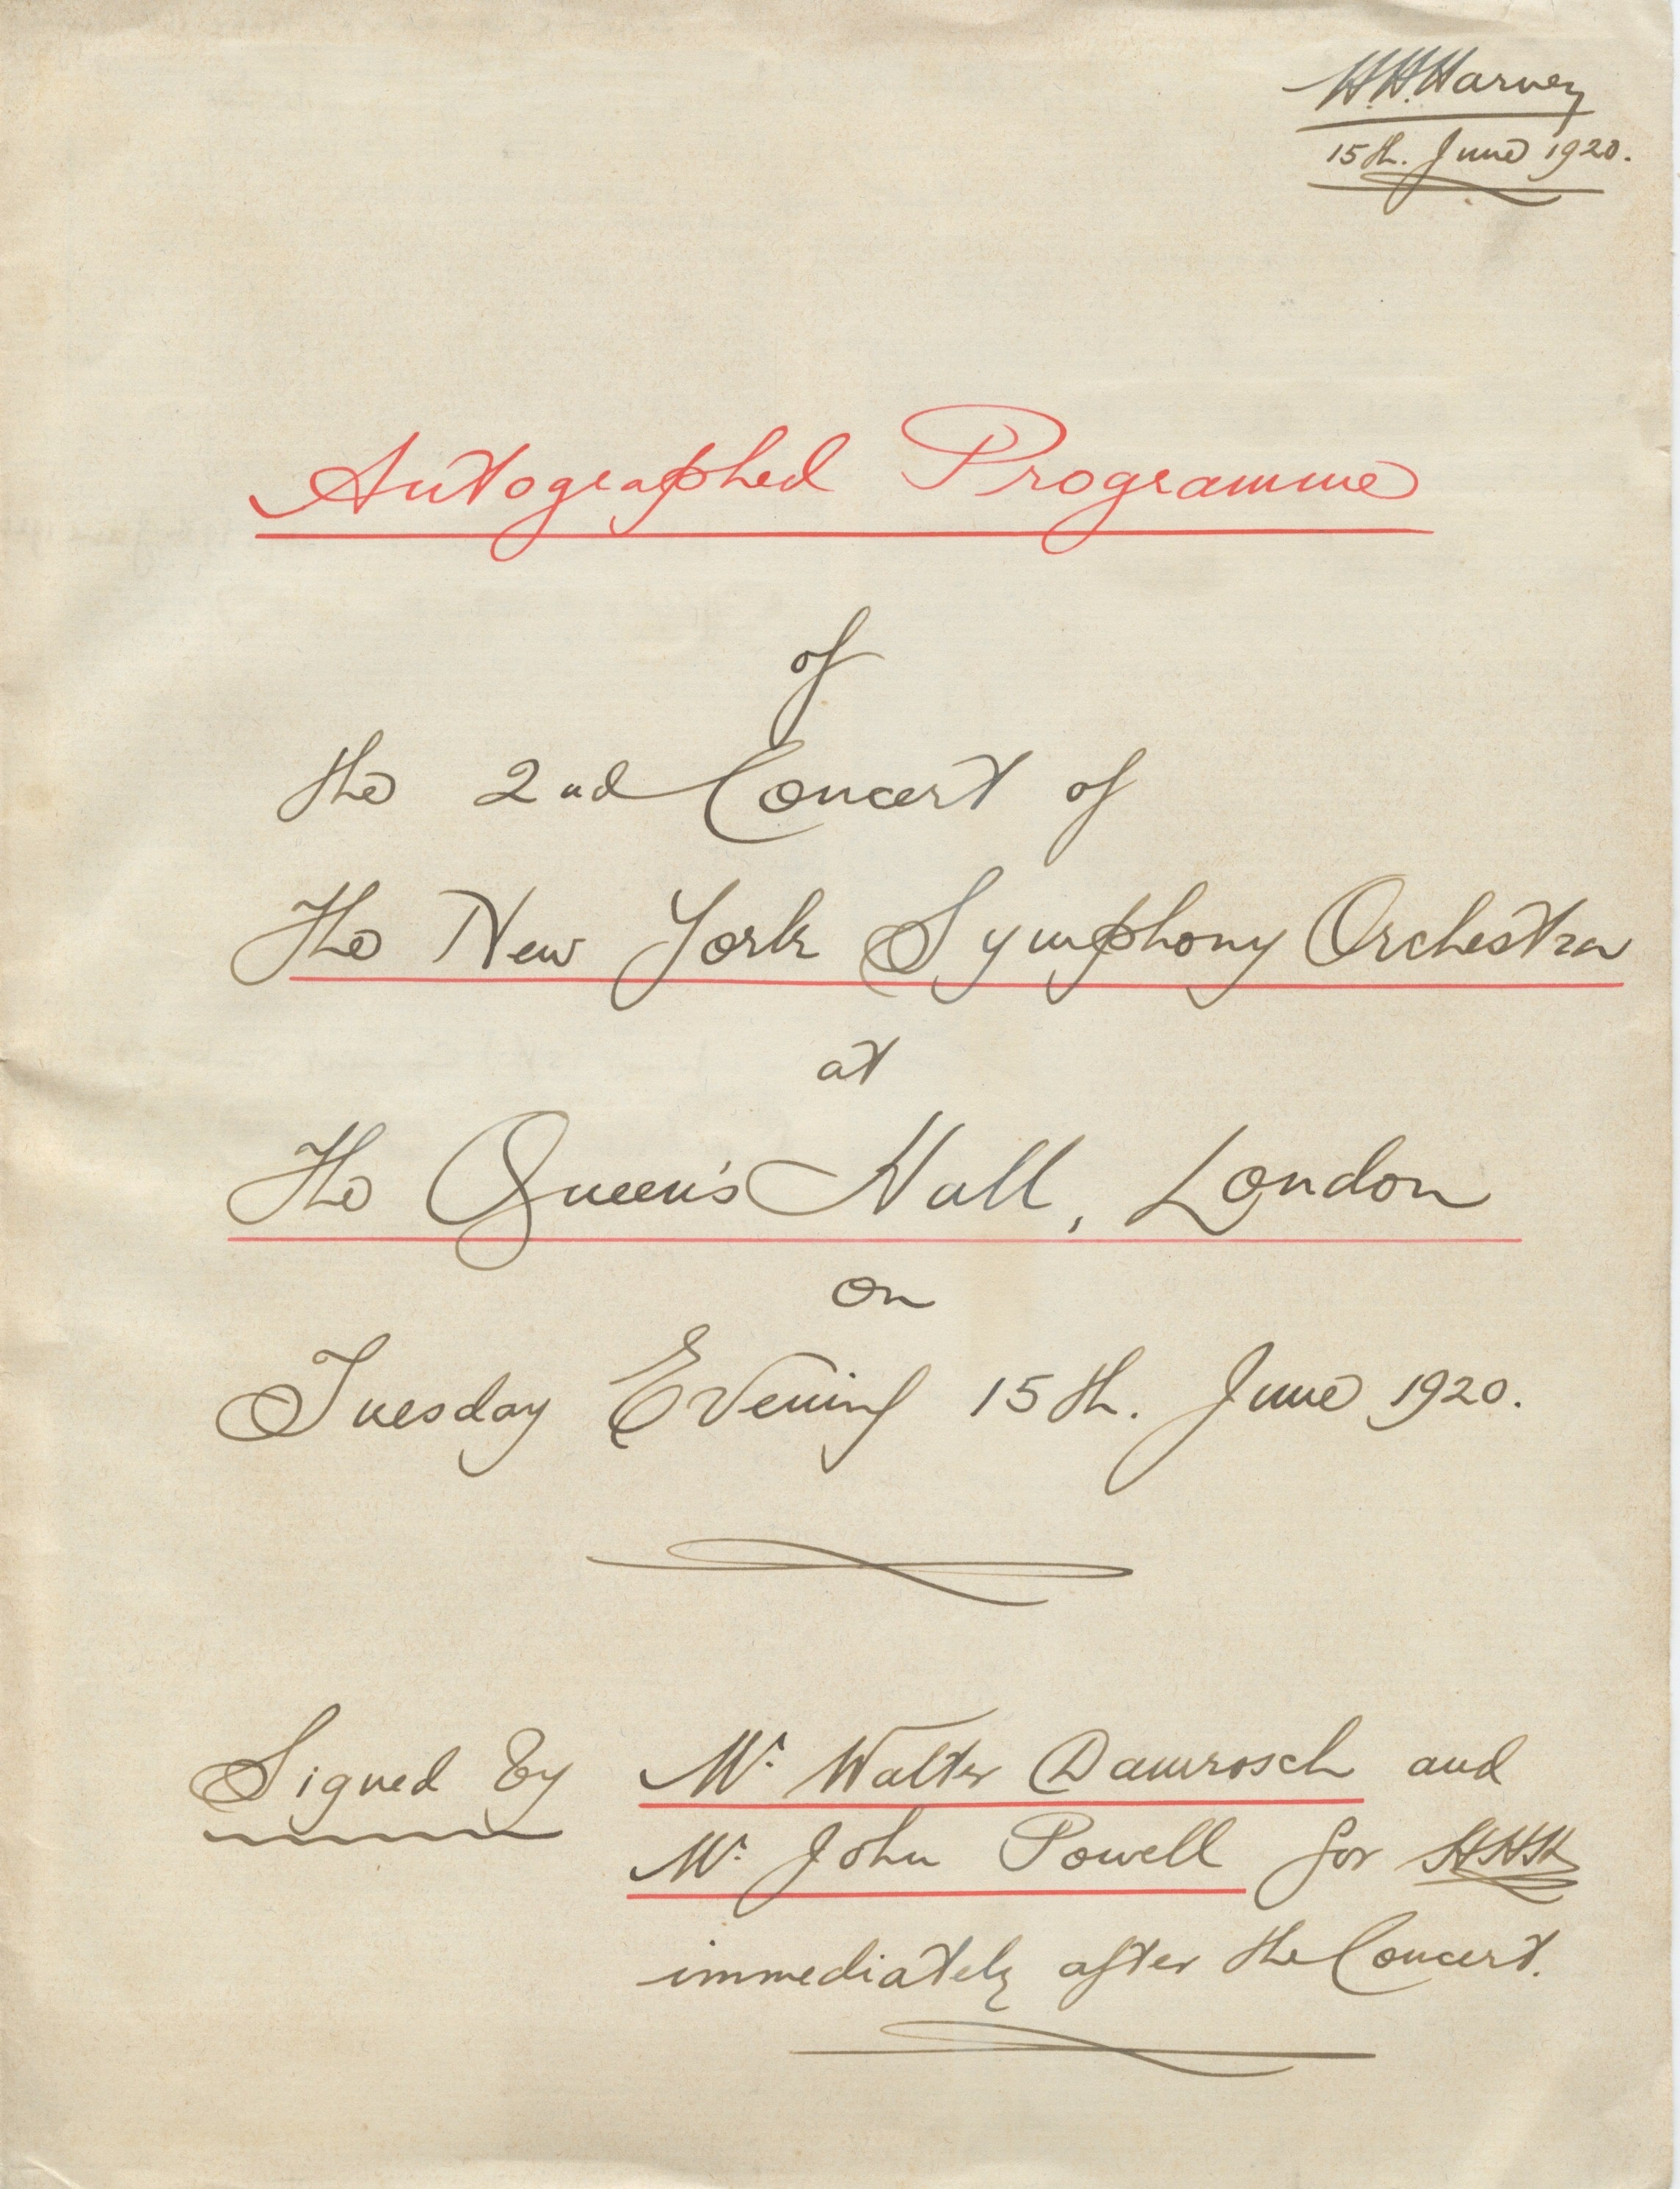 H.H. Harvey
15th. June 1920.
Autographed Programme
of
the 2nd Concert of
The New York Symphony Orchestra
at
The Queen's Hall, London
on
Tuesday Evening 15th. June 1920.
Signed by Mr. Walter Damrosch and
Mr. John Powell for HHH
immediately after the Concert.